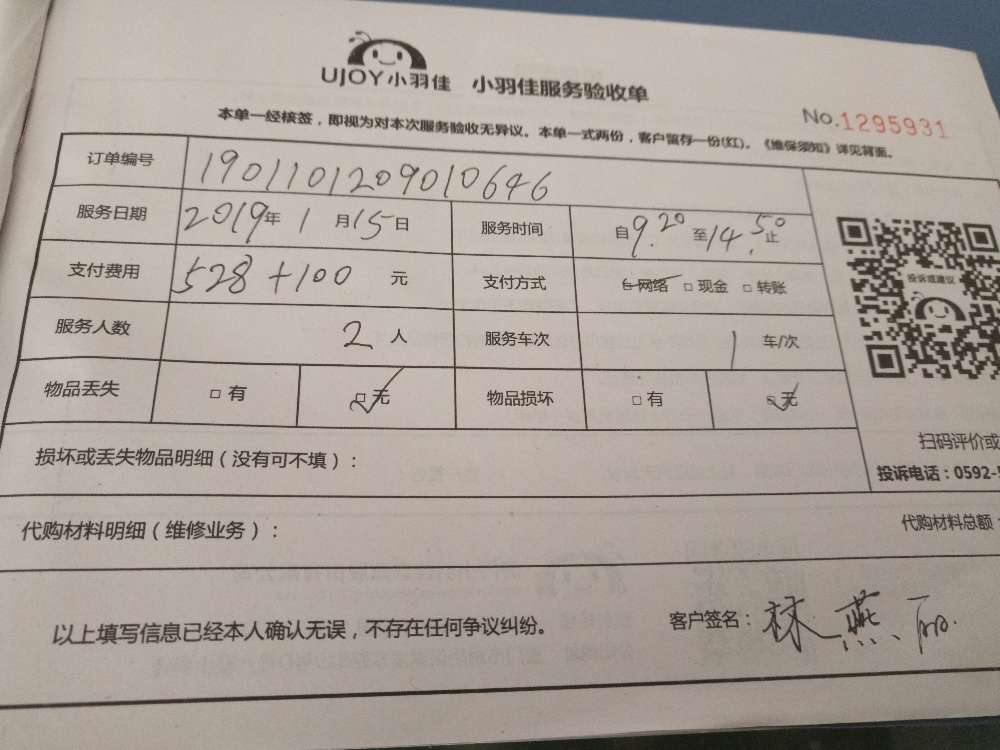 UJOY小羽佳 小羽佳服务验收单
No.1295931
本单一经核签，即视为对本次服务验收无异议。本单一式两份，客户留存一份(红)。《维保须知》详见背面。
订单编号 1901101209010646
服务日期 2019年 1 月 15 日 服务时间 自 9.20 至 14.50 止
支付费用 528+100 元 支付方式 □网络 □现金 □转账
服务人数 2 人 服务车次 1 车/次
物品丢失 □有 □无 物品损坏 □有 □无
投诉或建议
扫码评价或
投诉电话：0592-5
损坏或丢失物品明细（没有可不填）：
代购材料明细（维修业务）： 代购材料总额：
以上填写信息已经本人确认无误，不存在任何争议纠纷。 客户签名：林燕丽